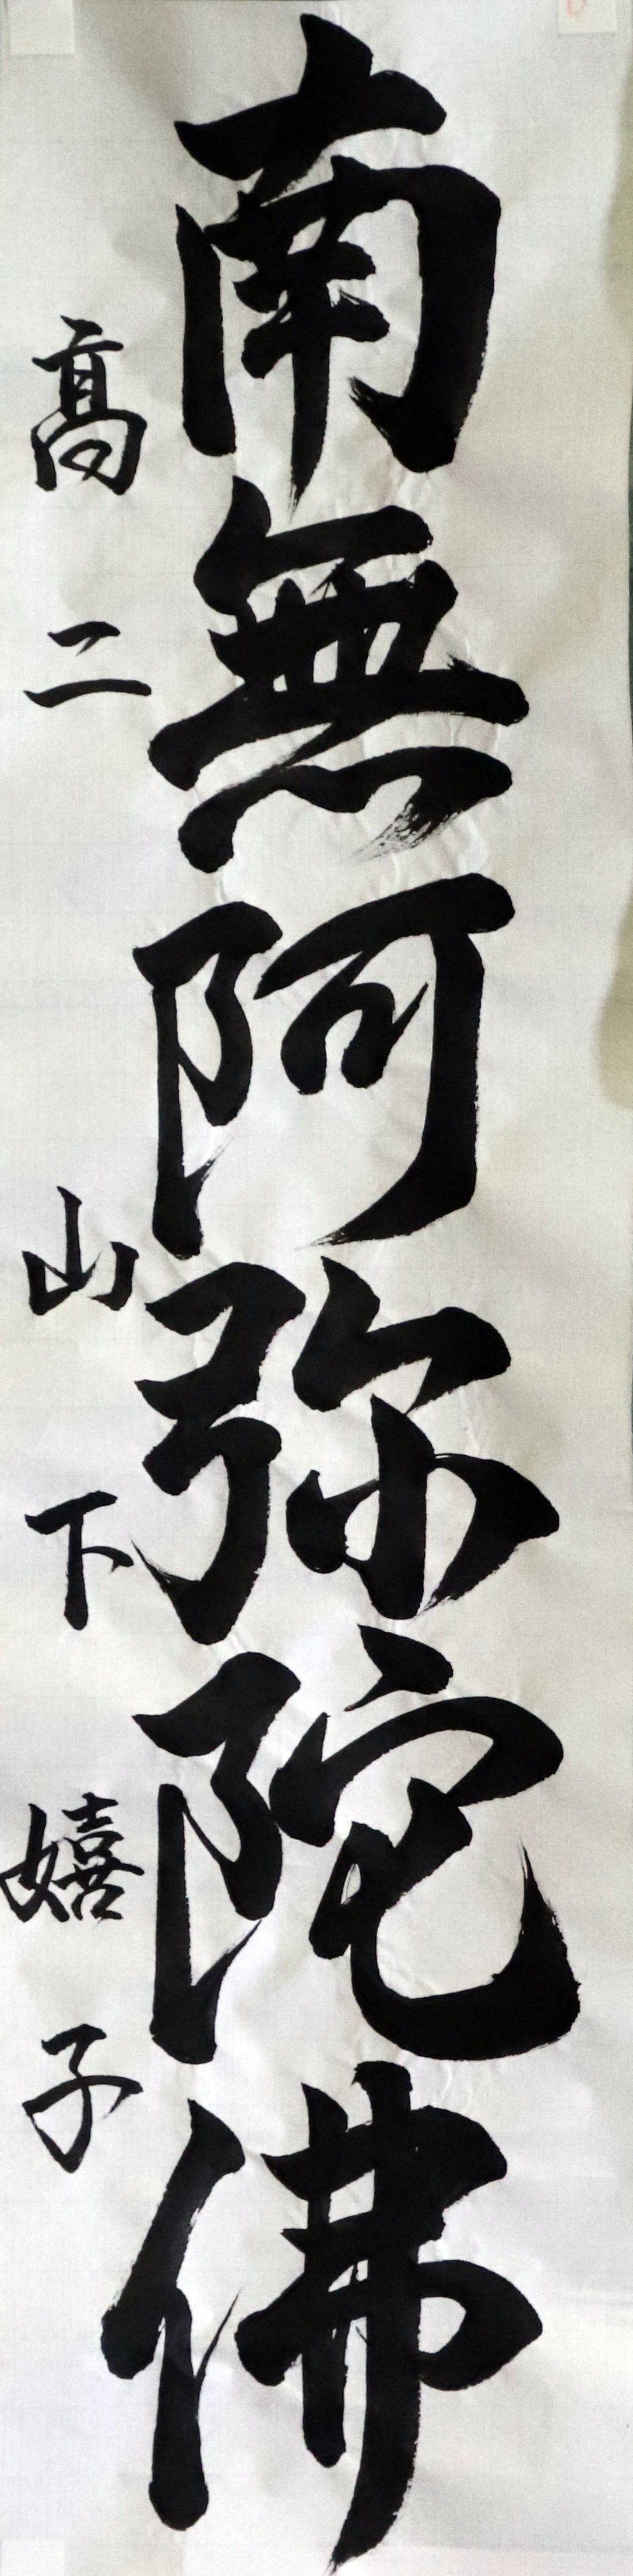 南無阿弥陀佛
高二 山下嬉子